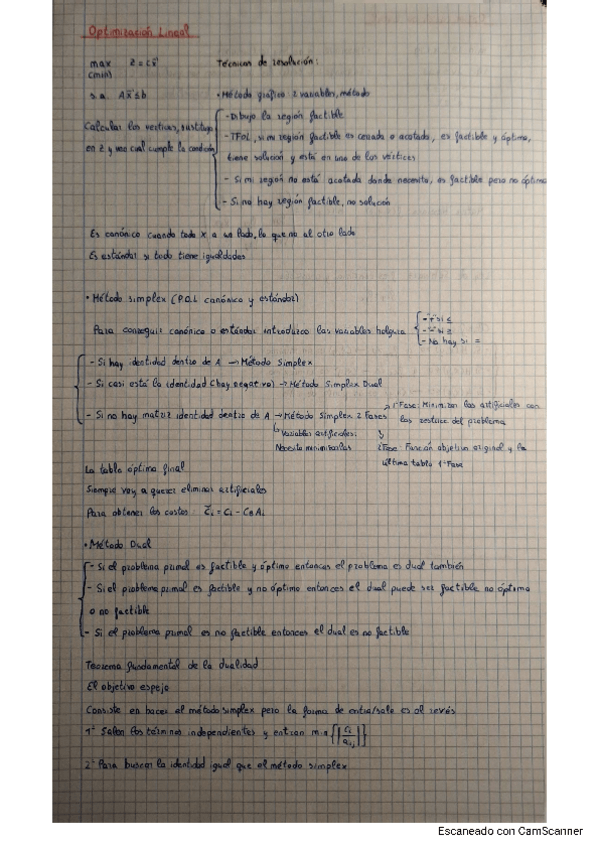 Optimización Lineal
max z = cx Técnicas de resolución:
(min)
s.a. Ax ≤ b • Método gráfico: 2 variables, método
- Dibujo la región factible
Calcular los vertices, sustituyo - TFOL, si mi región factible es cerrada o acotada, es factible y óptimo,
en z y veo cual cumple la condición tiene solución y está en uno de los vértices
- Si mi región no está acotada donde necesito, es factible pero no óptimo
- Si no hay región factible, no solución
Es canónico cuando toda x a un lado, lo que no al otro lado
Es estándar si todo tiene igualdades
• Método simplex (P.O.L canónico y estándar)
- "+" si ≤
Para conseguir canónica o estándar introduzco las variables holgura - "-" si ≥
- No hay si =
- Si hay identidad dentro de A → Método Simplex
- Si casi está la identidad (hay negativo) → Método Simplex Dual
1ª Fase: Minimizan las artificiales con
- Si no hay matriz identidad dentro de A → Método Simplex 2 Fases las restricc del problema
Variables artificiales:
Necesito minimizarlas 2ª Fase: Función objetivo original y la
última tabla 1ª Fase
La tabla óptima final
Siempre voy a querer eliminar artificiales
Para obtener los costos: c̄i = ci - cB Ai
• Método Dual
- Si el problema primal es factible y óptimo entonces el problema es dual también
- Si el problema primal es factible y no óptimo entonces el dual puede ser factible no óptimo
o no factible
- Si el problema primal es no factible entonces el dual es no factible
Teorema fundamental de la dualidad
El objetivo espejo
Consiste en hacer el método simplex pero la forma de entra/sale es al revés
1º Salen los términos independientes y entran min
2º Para buscar la identidad igual que el método simplex
Escaneado con CamScanner